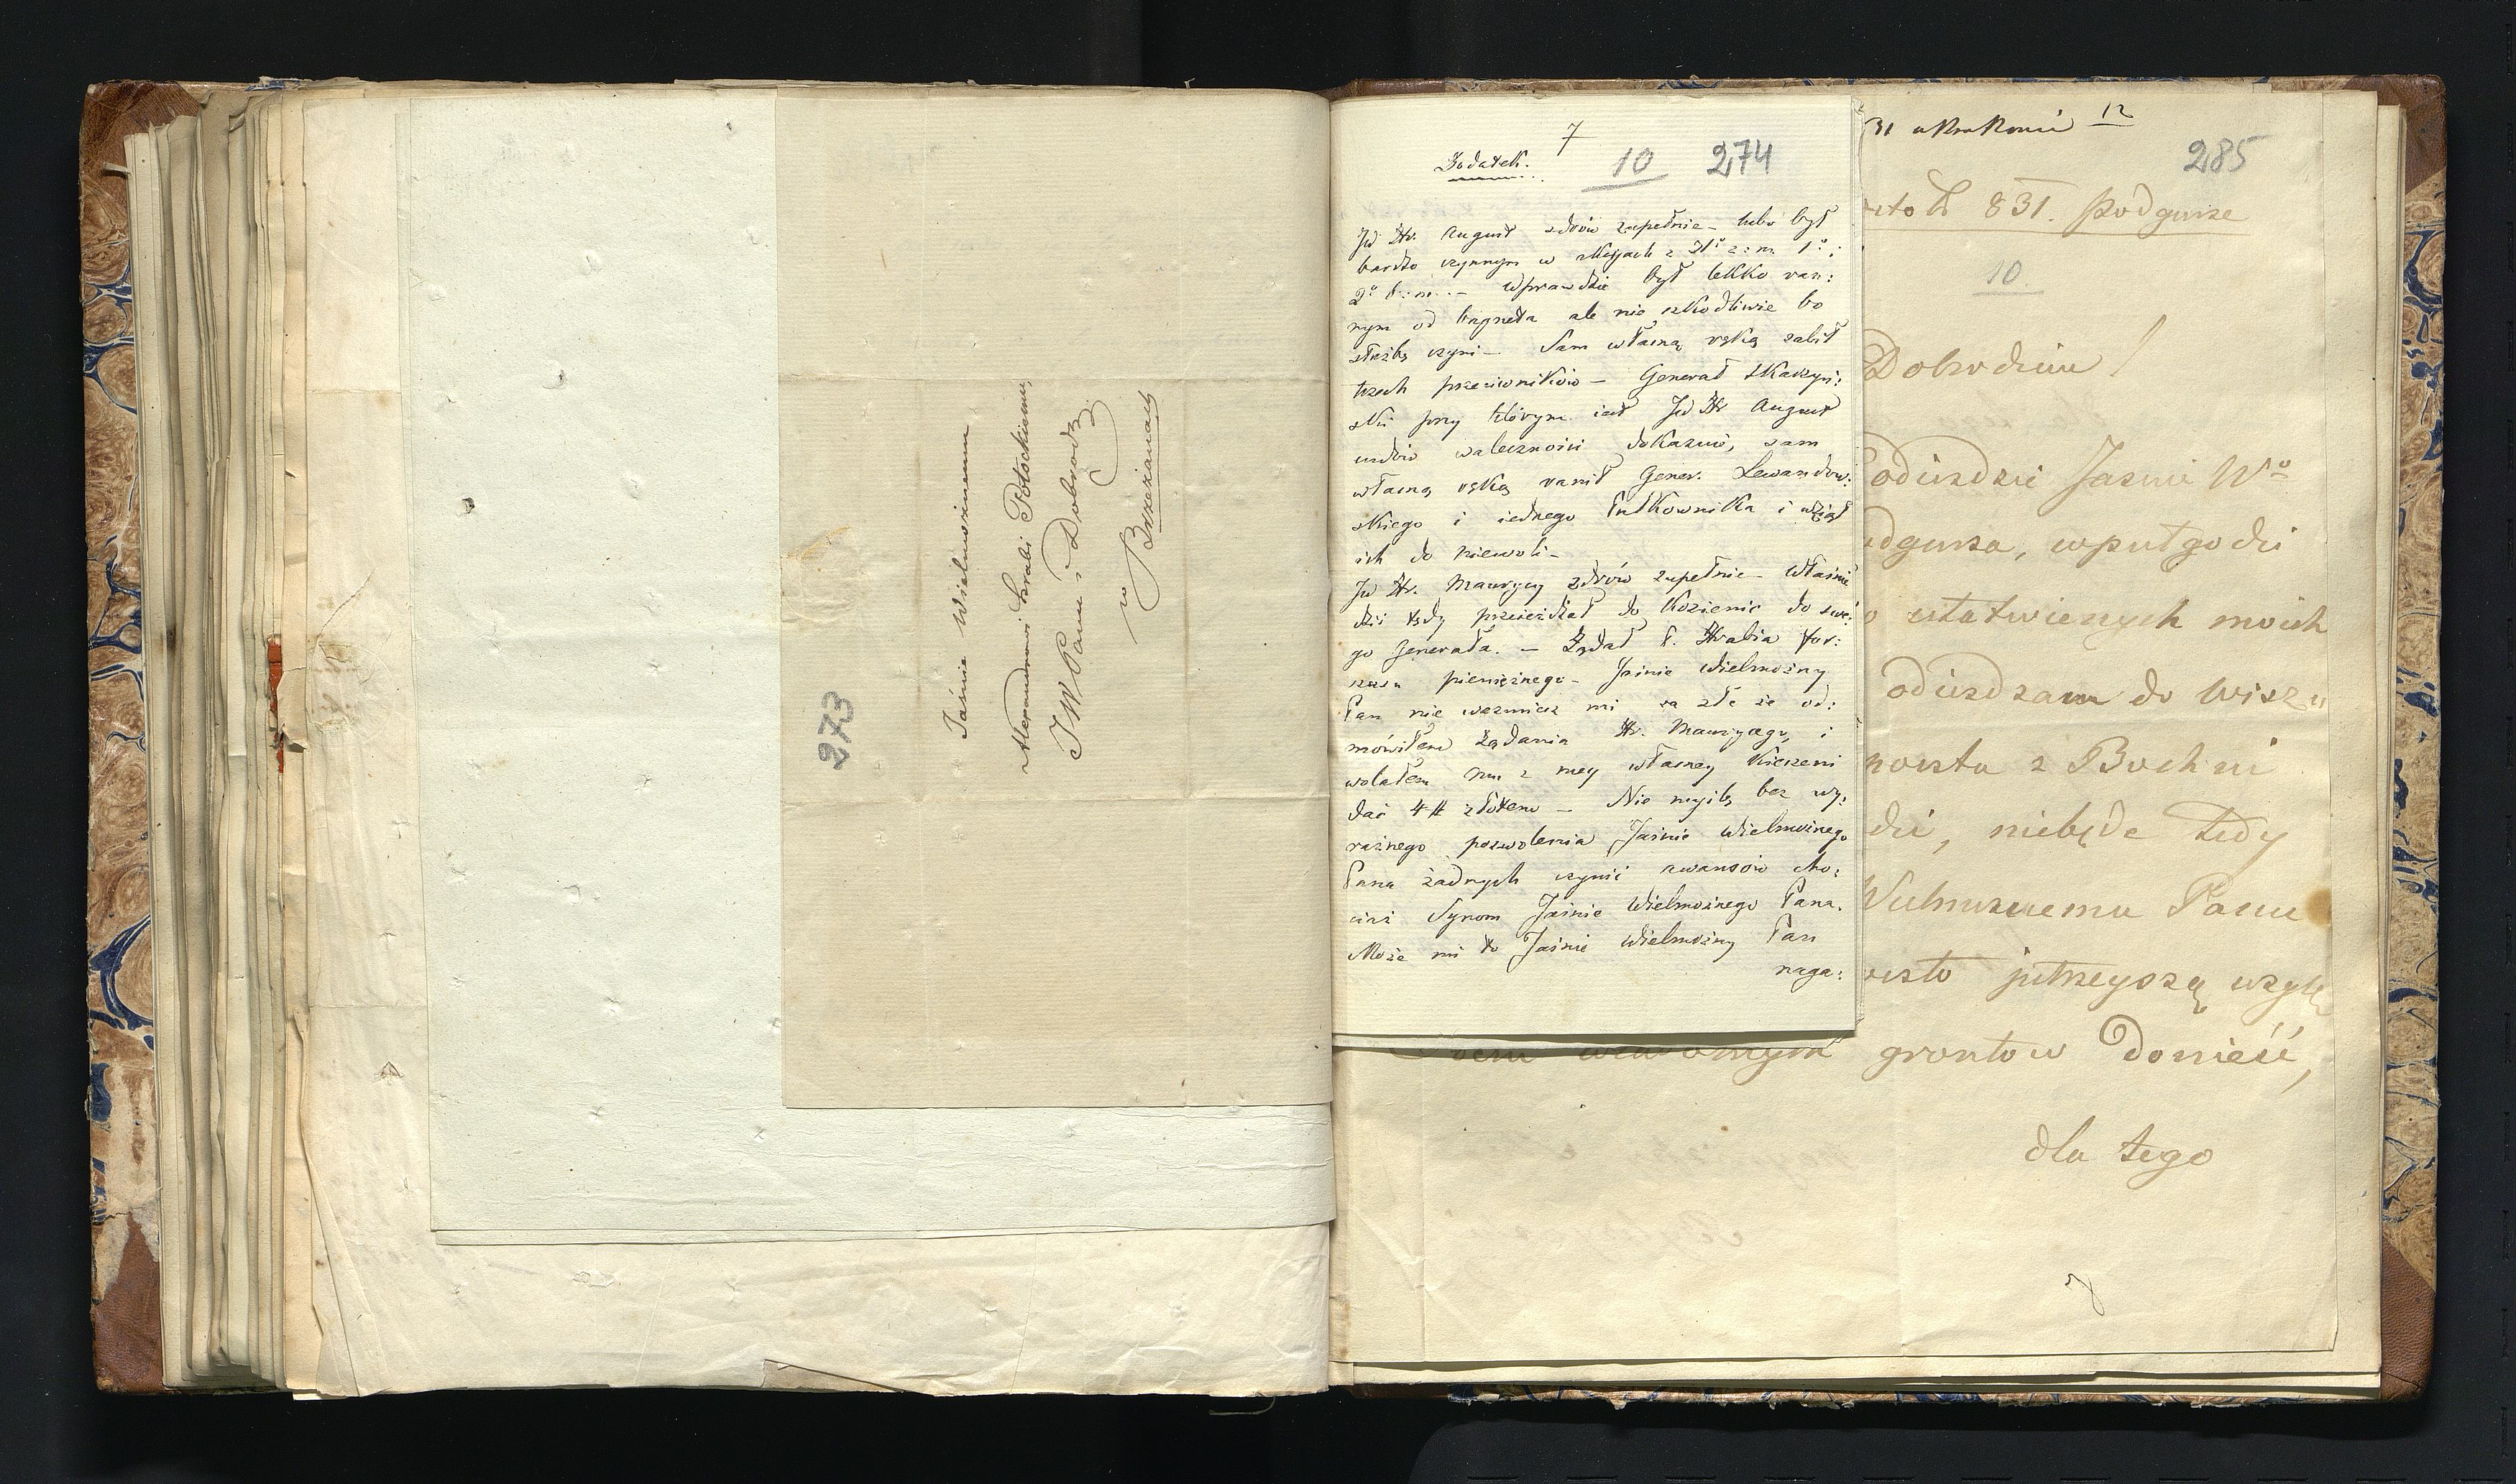 273
Jaśnie Wielmożnemu
Alexandrowi hrabi Potockiemu
JW Panu i Dobrodz
w Brzeżanach
7
Dodatek.
10 274
JW Hr. August zdrów zupełnie – lubo był
bardzo czynnym w akcyach z 31° z: m. 1°;
2° b: m. – Wprawdzie był lekko ran:
nym od bagneta ale nie szkodliwie bo
służbę czyni – Sam własną ręką zabił
trzech przeciwników – Generał Skarżyń:
ski przy którym iest JW Hr August
cudów waleczności dokazuie, sam
własną ręką ranił Gener. Lewandow:
skiego i iednego Pułkownika i wziął
ich do niewoli –
JW Hr. Maurycy zdrów zupełnie – Właśnie
dziś tędy przeieżdżał do Kozienic do swe:
go Generała. – Żądał P. Hrabia for:
szusu pieniężnego – Jaśnie Wielmożny
Pan nie weźmiesz mi za złe że od:
mówiłem żądania Hr. Maurycego, i
wolałem mu z mey własney kieszeni
dać 4 # złotem – Nie myślę bez wy:
raźnego pozwolenia Jaśnie Wielmożnego
Pana żadnych czynić awansów cho:
ciaż Synom Jaśnie Wielmożnego Pana.
Może mi to Jaśnie Wielmożny Pan
naga:
31 w Krakowie 12
285
831. Podgurze
10.
Dobrodzieiu!
odiezdzie Jasnie Wo
dgurza, wpułgodzi
ułatwienych moich
odiezdzam do Wisz
z Bochni
dzi, niebęde tedy
Wielmoznemu Panu
jutrzeyszą wzglę
wiadomych grontow donieść,
dla tego